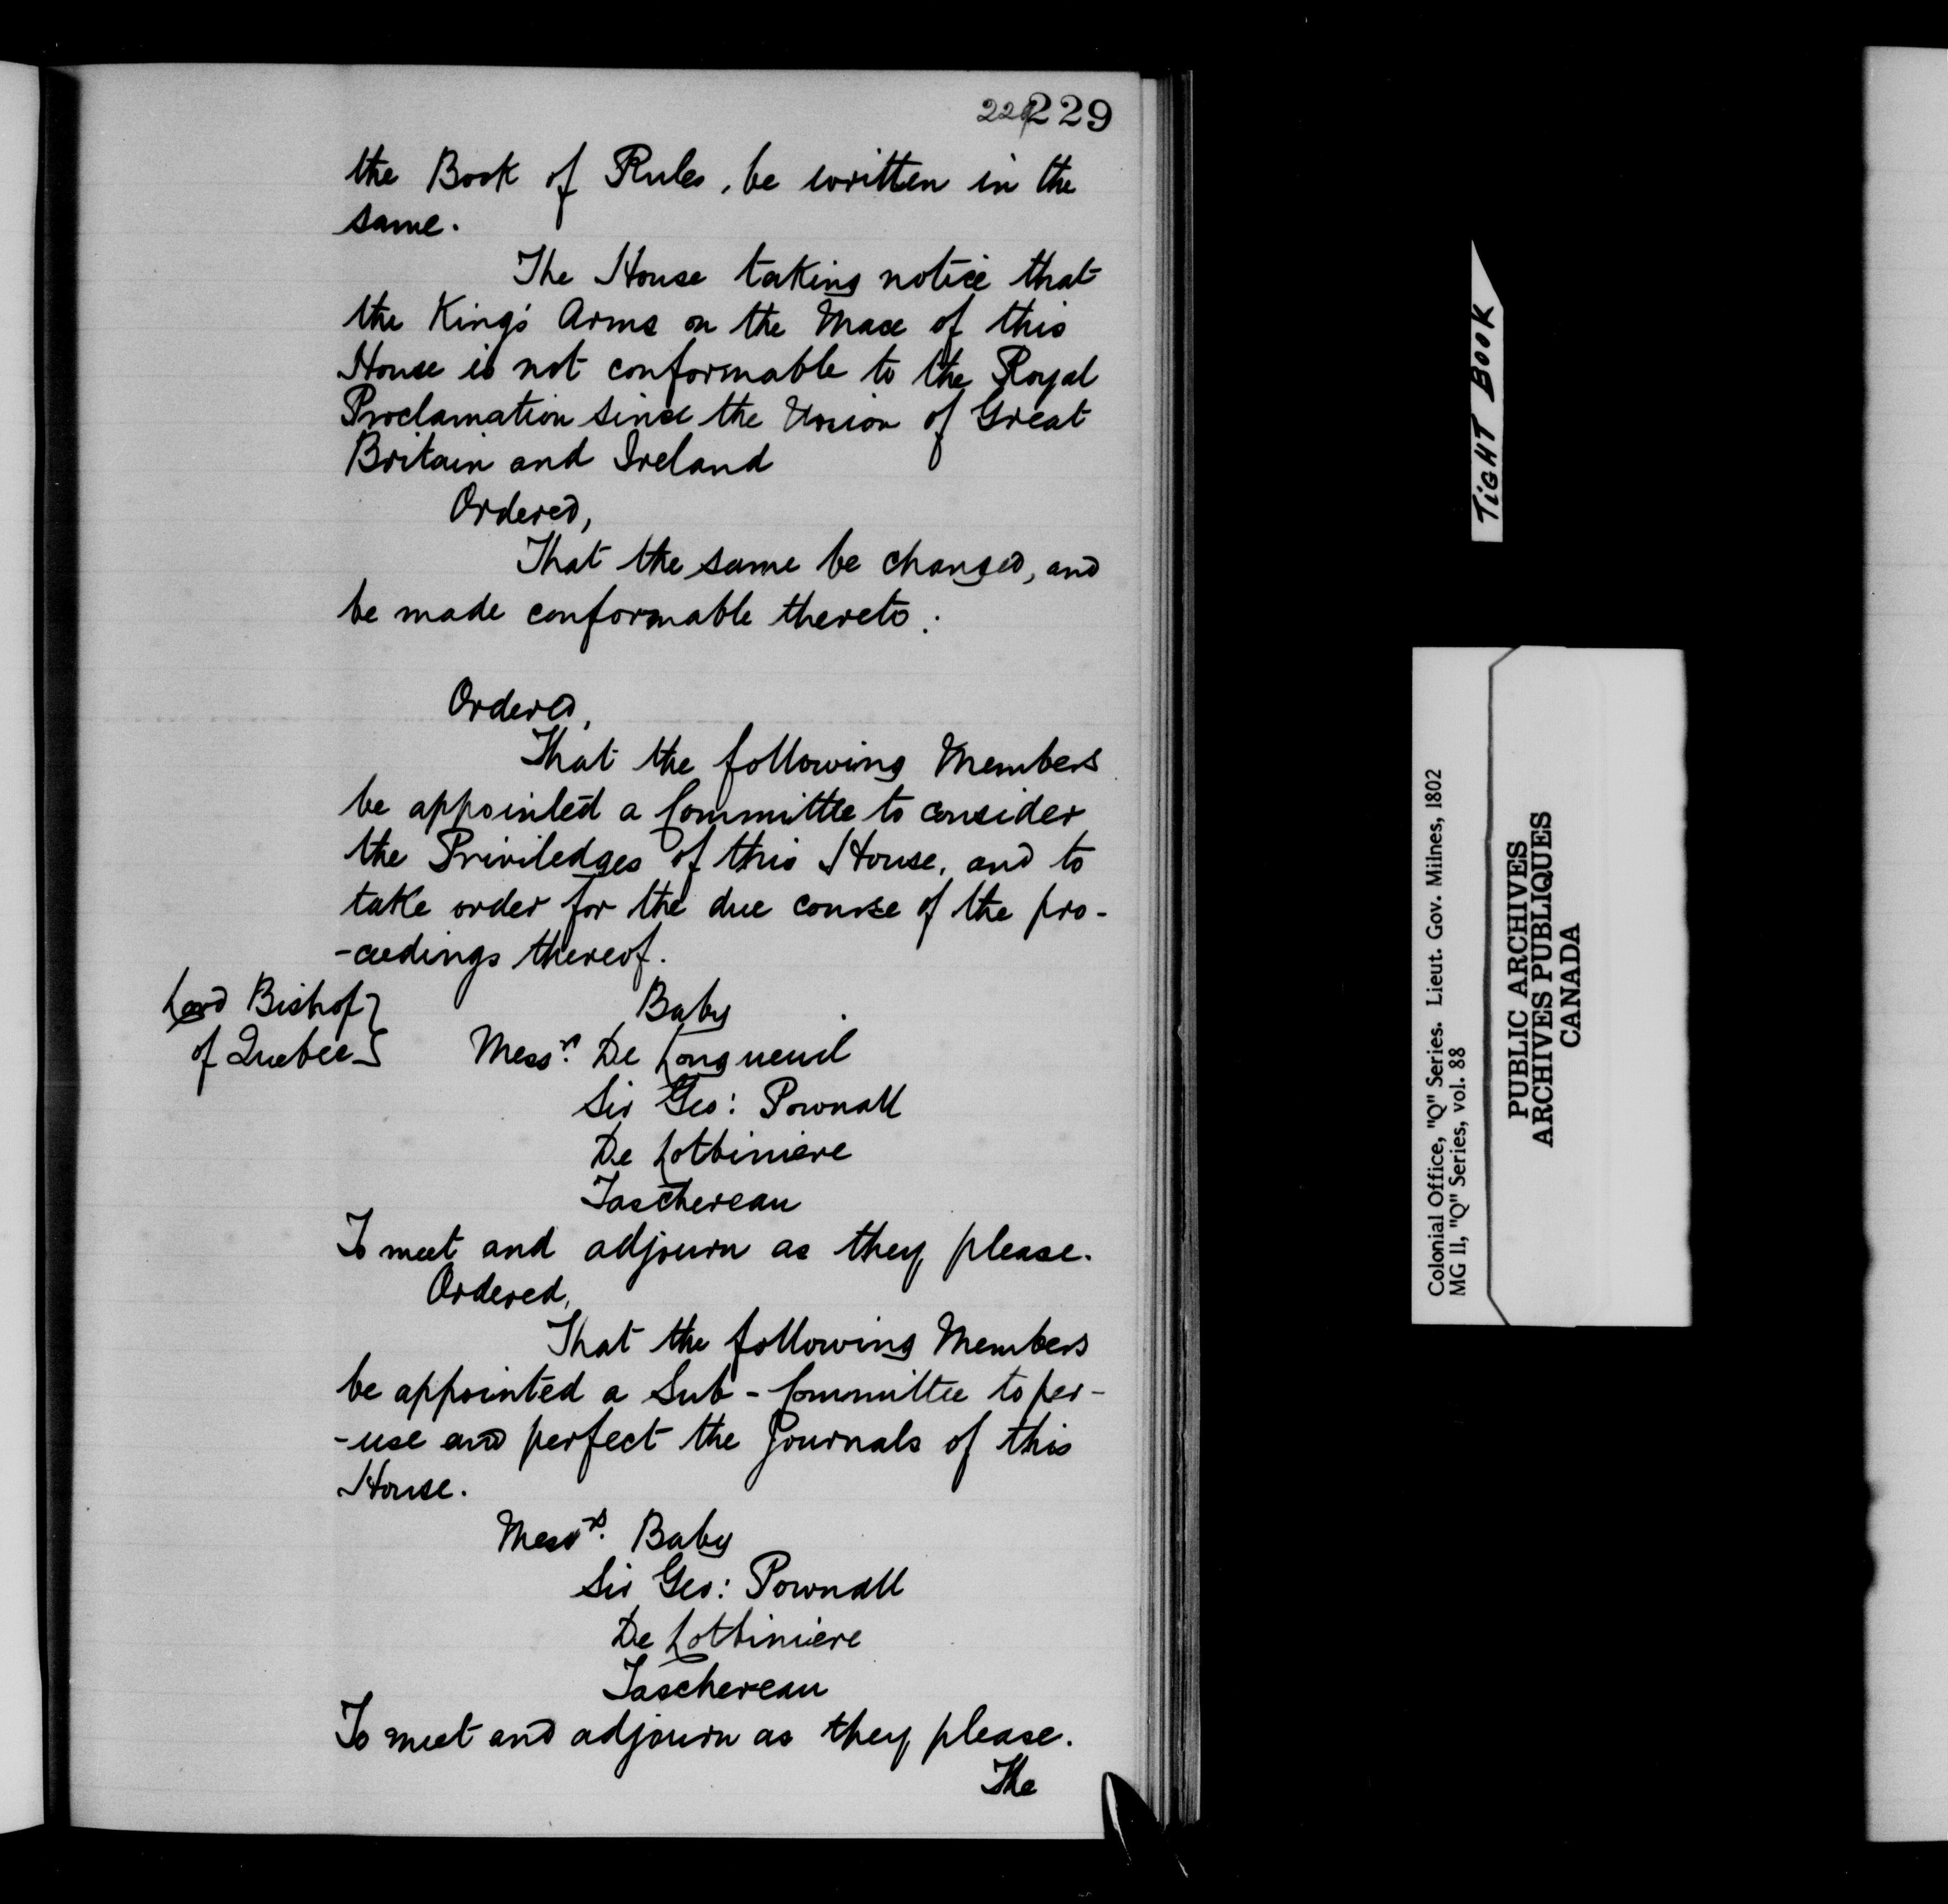 229 229
the Book of Rules, be written in the
same.
The House taking notice that
the King's Arms on the Mace of this
House is not conformable to the Royal
Proclamation since the Union of Great
Britain and Ireland
Ordered,
That the same be changed, and
be made conformable thereto.
Ordered,
That the following Members
be appointed a Committee to consider
the Priviledges of this House, and to
take order for the due course of the pro-
-ceedings thereof.
Lord Bishop
of Quebec
Baby
Messrs. De Longueuil
Sir Geo: Pownall
De Lotbiniere
Taschereau
To meet and adjourn as they please.
Ordered,
That the following Members
be appointed a Sub-Committee to per-
-use and perfect the Journals of this
House.
Messrs. Baby
Sir Geo: Pownall
De Lotbiniere
Taschereau
To meet and adjourn as they please.
The
TIGHT BOOK
Colonial Office, "Q" Series. Lieut. Gov. Milnes, 1802
MG 11, "Q" Series, vol. 88
PUBLIC ARCHIVES
ARCHIVES PUBLIQUES
CANADA